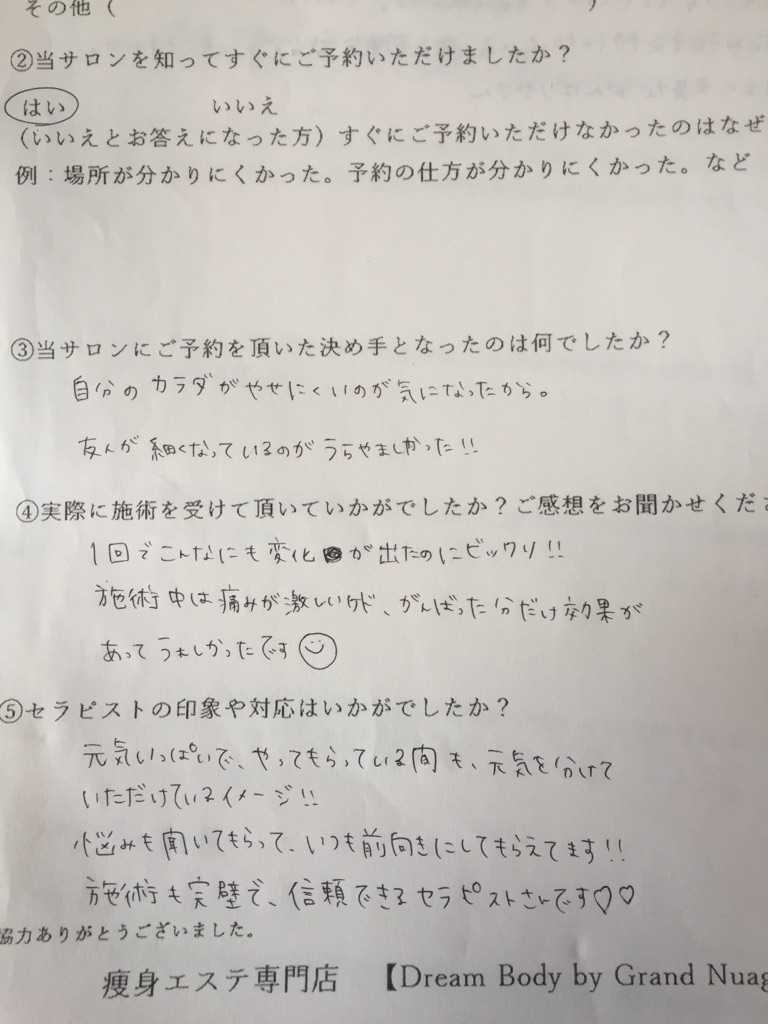 その他（　　　　　）
②当サロンを知ってすぐにご予約いただけましたか？
はい　　　いいえ
（いいえとお答えになった方）すぐにご予約いただけなかったのはなぜ
例：場所が分かりにくかった。予約の仕方が分かりにくかった。など
③当サロンにご予約を頂いた決め手となったのは何でしたか？
自分のカラダがやせにくいのが気になったから。
友人が細くなっているのがうらやましかった!!
④実際に施術を受けて頂いていかがでしたか？ご感想をお聞かせくださ
1回でこんなにも変化が出たのにビックリ!!
施術中は痛みが激しいケド、がんばった分だけ効果が
あってうれしかったです
⑤セラピストの印象や対応はいかがでしたか？
元気いっぱいで、やってもらっている間も、元気を分けて
いただけているイメージ!!
悩みも聞いてもらって、いつも前向きにしてもらえてます!!
施術も完璧で、信頼できるセラピストさんです♡♡
協力ありがとうございました。
痩身エステ専門店　【Dream Body by Grand Nuag